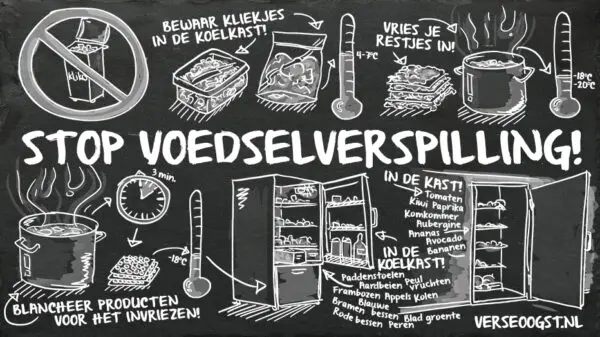 BEWAAR KLIEKJES
IN DE KOELKAST!
VRIES JE
RESTJES IN!
Kliko
4-7°C
-18°C
-20°C
STOP VOEDSELVERSPILLING!
3 min.
-18°C
BLANCHEER PRODUCTEN
VOOR HET INVRIEZEN!
IN DE KAST!
Tomaten
Kiwi Paprika
Komkommer
Aubergine
Ananas
Avocado
Bananen
IN DE
KOELKAST!
Paddenstoelen
Aardbeien Peul
vruchten
Frambozen Appels Kolen
Blauwe
Bramen bessen Blad groente
Rode
bessen Peren
VERSEOOGST.NL